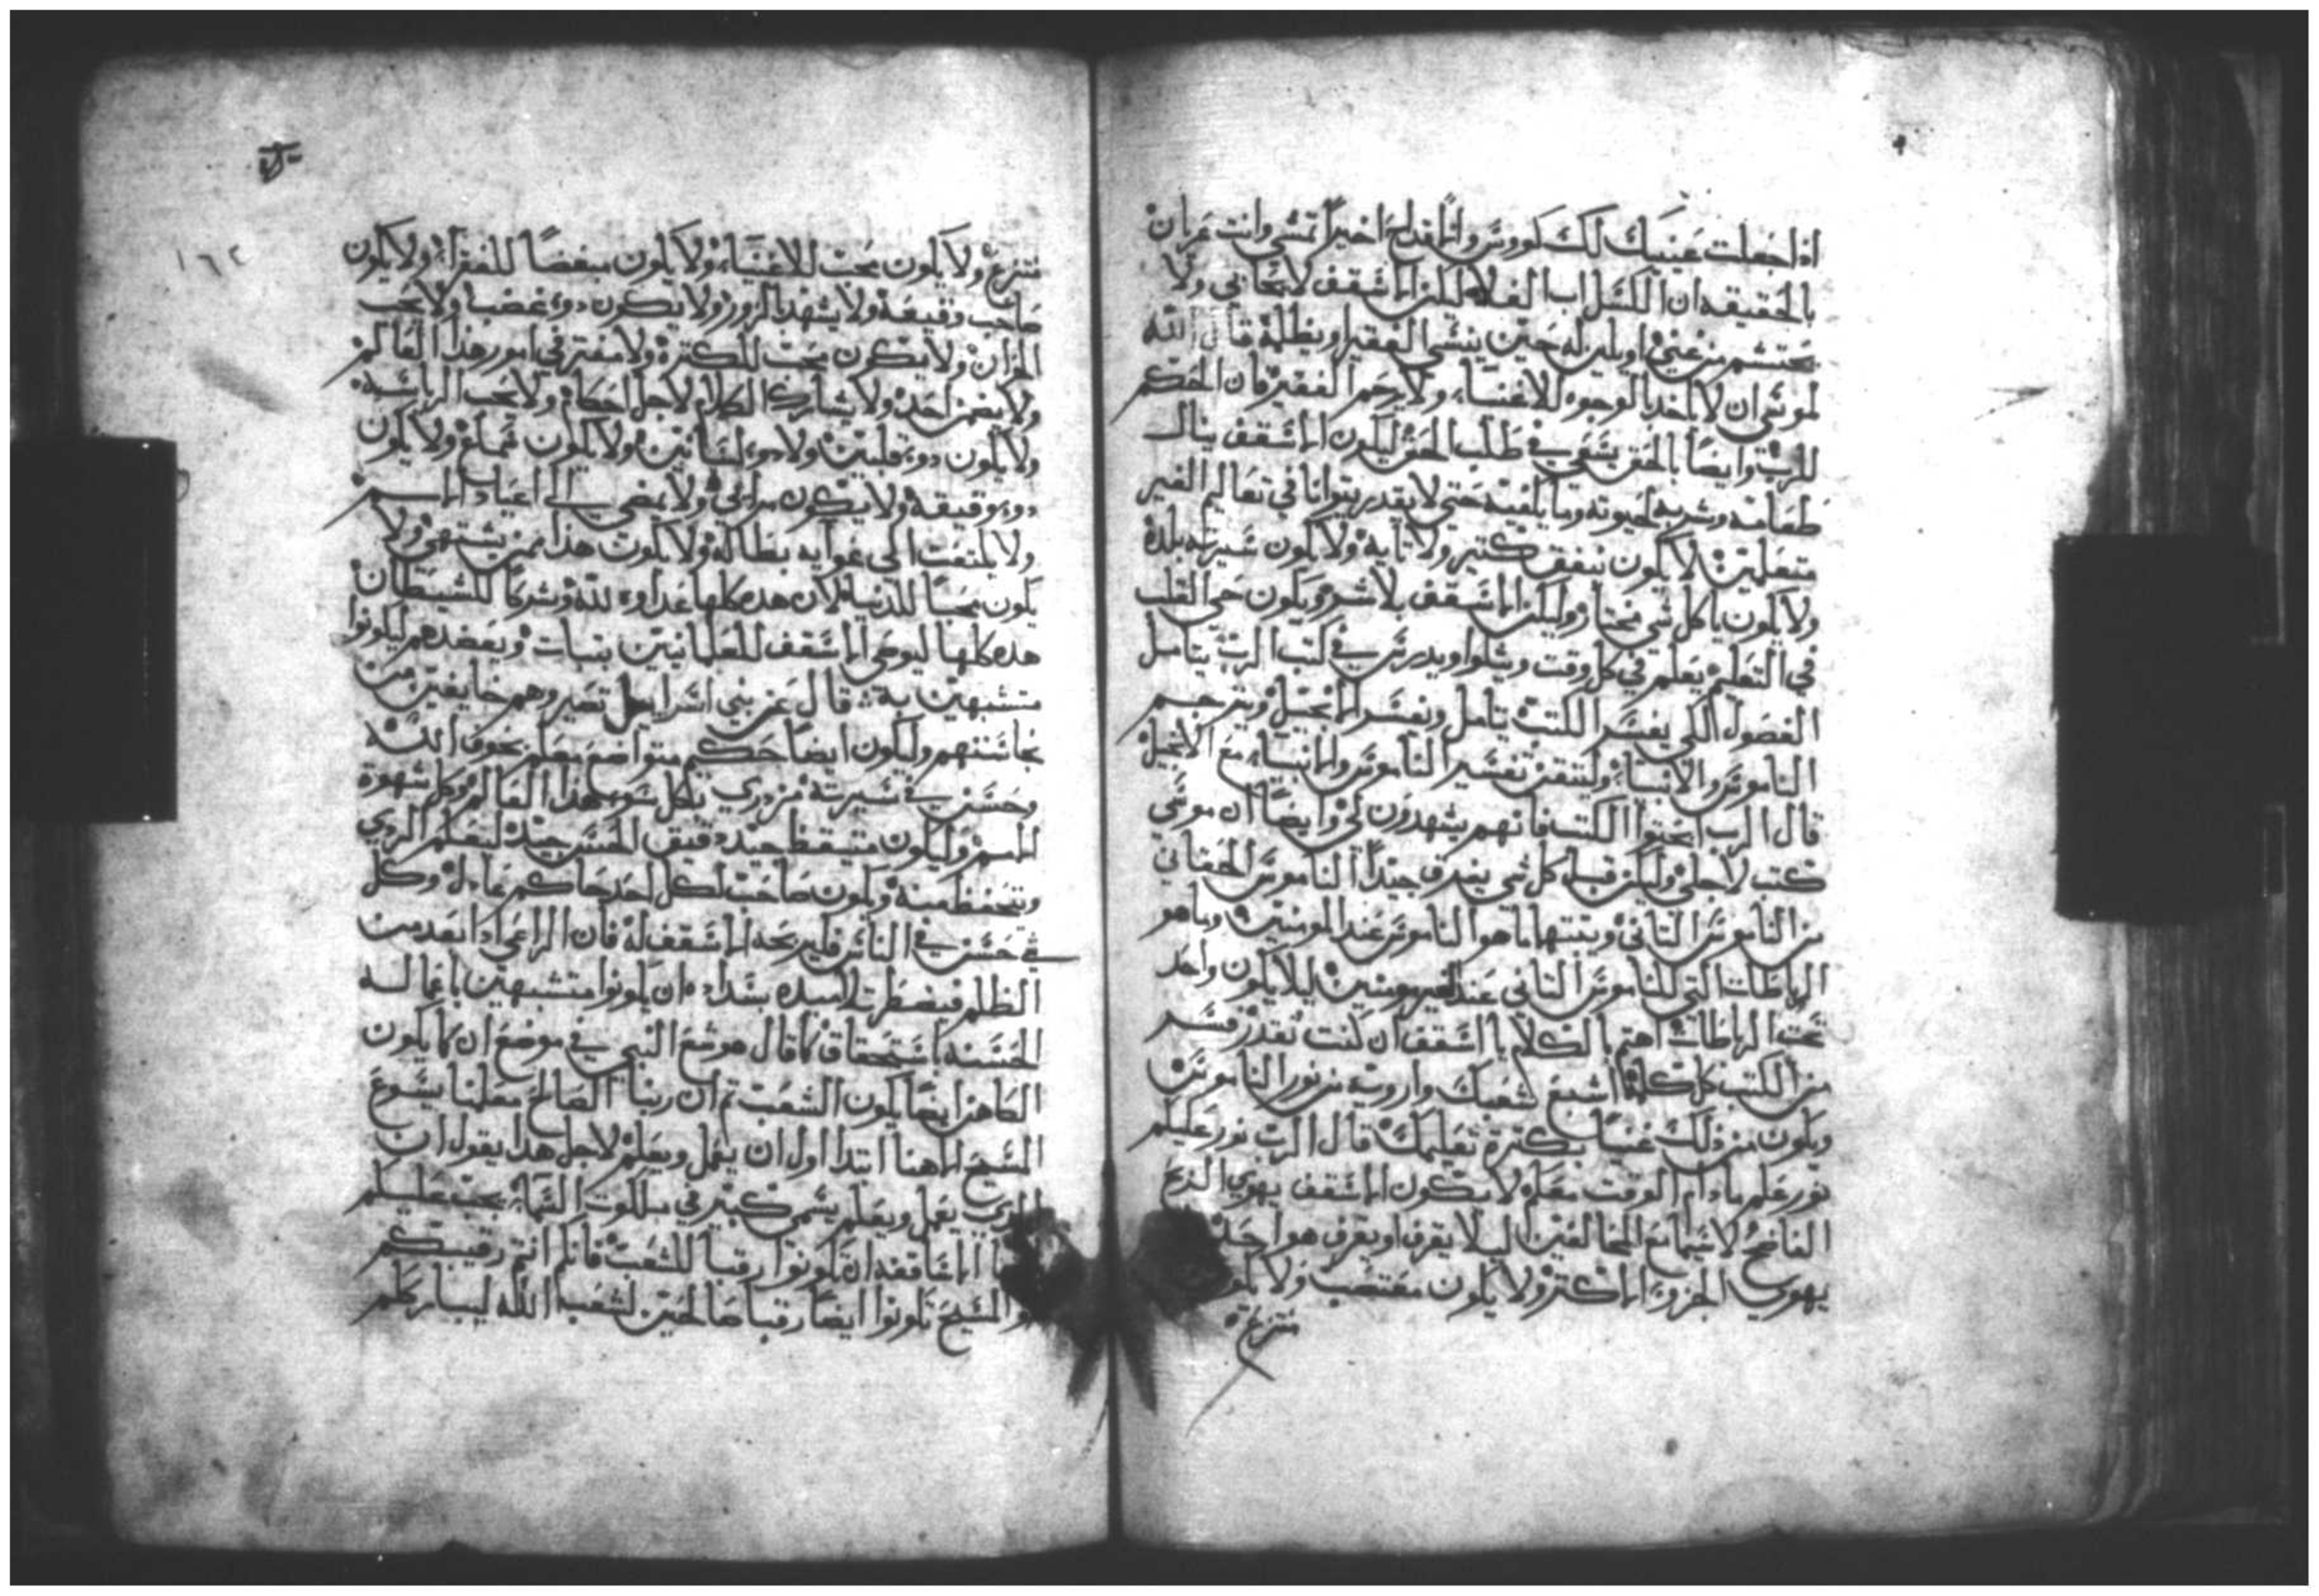 اذا جعلت عينيك للكووس والاقداح اخيرا تمشي وانت عريان
بالحقيقه ان الكسل اب الغلا ليكن الاسقف لا يحابي ولا
يحتشم من غني او يلين له حين ينسى الفقير او يظلمه قال الله
لموسى ان لا تاخذ بالوجوه للاغنياء ولا ترحم الفقير فان الحكم
للرب وايضا بالحق يسعى في طلب الحق ليكون الاسقف ينال
طعامه وشربه لحيوته وما يكفيه حتى لا يقدر يتوانا في تعاليم الغير
متعلمين لا يكون ينفق كتير ولا تايه ولا يكون سيرته بلده
ولا يكون ياكل شي مختار وليكن الاسقف بلا شر ويكون حي القلب
في التعليم يعلم في كل وقت ويتلوا ويدرس في كتب الرب يتامل
الفصول لكي يفسر الكتب بتامل ويفسر الانجيل ويترجم
الناموس والانبياء وليتقن تفسير الناموس والانبياء مع الانجيل
قال الرب ابحتوا الكتب فانهم يشهدون لي وايضا ان موسى
كتب لاجلي وليكن قبل كل شي يفرق جيدا الناموس الحقاني
من الناموس التاني ويتنبها ما هوا الناموس عند المومنين وما هو
الرباطات التي للناموس التاني عند الغير مومنين ليلا يكون واحد
تحت الرباطات اهتم بالكلام يا اسقف ان كنت تقدر فسر
من الكتب كل كلمة اشبع شعبك وارويه من نور الناموس
ويكون من ذلك غنيا بكترة تعليمك قال الرب نور عليكم
نور علم ما دام الوقت معكم لا يكون الاسقف يهوي الربح
الفاضح لا سيما مع المخالفين ليلا يعرف او يعرف هو احد
يهوي الجزو الاكتر ولا يكون مغتصب ولا يكون
منتزع
منتزع ولا يكون يحب للاغنياء ولا يكون مبغضا للفقراء ولا يكون
صاحب وقيعة ولا يشهد الزور ولا يكون دو غضب ولا يحب
الخزان ولا يكون يحب للكترة ولا مفتر في امور هذا العالم
ولا يضمن احد ولا يشارك الكلام لاجل احكام ولا يحب الرياسة
ولا يكون دو قلبين ولا دو لسانين ولا يكون نمام ولا يكون
دو وقيعة ولا يكون مرائي ولا يمضي الى اعياد الامم
ولا يلتفت الى غوايه بطاله ولا يكون هذا ممن يشتهي ولا
يكون محبا للدنيا لان هده كلها عداوة لله وشركا للشيطان
هده كلها ليوصي الاسقف للعلمانيين بتبات ويعضدهم ليكونوا
متشبهين به قال عن بني اسرايل تصير وهم خايفين من
نجاستهم وليكون ايضا حكيم متواضع معلم بخوف الله
وحسن في سيرته مزدري بكل سو هذا العالم وكل شهوة
الامم وليكون متيقظ جيد دقيق الحس جيد ليعلم الردي
ويتحفظ منه ويكون صاحب لكل احد حاكم عادل وكل
شي حسن في الناس فليربحه الاسقف له فان الراعي ادا بعد من
الظلم فيضطر تلاميده بشدادة ان يكونوا متشبهين باعماله
الحسنة باستحقاق كما قال هوشع النبي في موضع ان كما يكون
الكاهن ايضا يكون الشعب تم ان ربنا الصالح معلمنا يسوع
المسيح الاهنا ابتدا اول ان يعمل ويعلم لاجل هدا يقول ان
الدي يعمل ويعلم يسمى كبير في ملكوت السماء يجب عليكم
الاساقفه ان تكونوا رقبا للشعب فانكم انتم رقيبكم
المسيح تكونوا ايضا رقبا صالحين لشعب الله ليبارككم
١٦٢